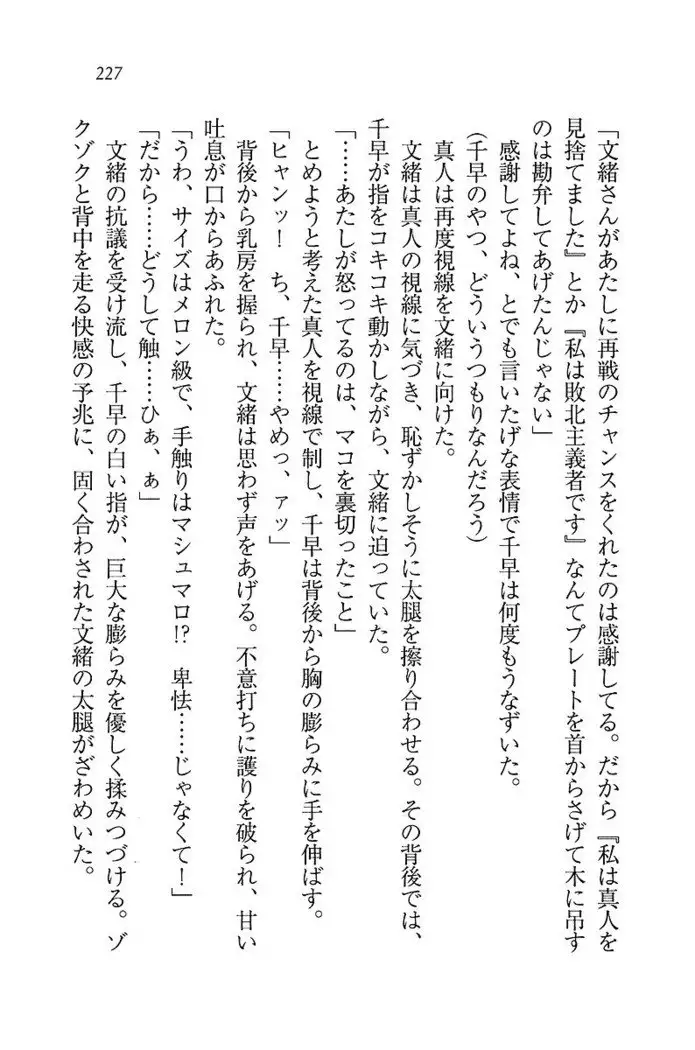 227
「文緒さんがあたしに再戦のチャンスをくれたのは感謝してる。だから『私は真人を
見捨てました』とか『私は敗北主義者です』なんてプレートを首からさげて木に吊す
のは勘弁してあげたんじゃない」
感謝してよね、とでも言いたげな表情で千早は何度もうなずいた。
(千早のやつ、どういうつもりなんだろう)
真人は再度視線を文緒に向けた。
文緒は真人の視線に気づき、恥ずかしそうに太腿を擦り合わせる。その背後では、
千早が指をコキコキ動かしながら、文緒に迫っていた。
「……あたしが怒ってるのは、マコを裏切ったこと」
とめようと考えた真人を視線で制し、千早は背後から胸の膨らみに手を伸ばす。
「ヒャンッ！　ち、千早……やめっ、アッ」
背後から乳房を握られ、文緒は思わず声をあげる。不意打ちに護りを破られ、甘い
吐息が口からあふれた。
「うわ、サイズはメロン級で、手触りはマシュマロ!?　卑怯……じゃなくて！」
「だから……どうして触……ひぁ、ぁ」
文緒の抗議を受け流し、千早の白い指が、巨大な膨らみを優しく揉みつづける。ゾ
クゾクと背中を走る快感の予兆に、固く合わされた文緒の太腿がざわめいた。